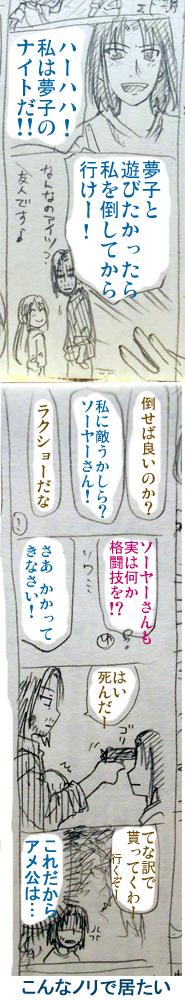 ハーハハ！
私は夢子の
ナイトだ!!
夢子と
遊びたかったら
私を倒してから
行けー！
なんなのアイツ？
友人です♪
倒せば良いのか？
私に敵うかしら？
ソーヤーさん！
ラクショーだな
ソーヤーさんも
実は何か
格闘技を!?
ソワソワ
さあ かかって
きなさい！
はい
死んだー
ゴリ
てな訳で
貰ってくわー
行くぞー
これだから
アメ公は…
こんなノリで居たい